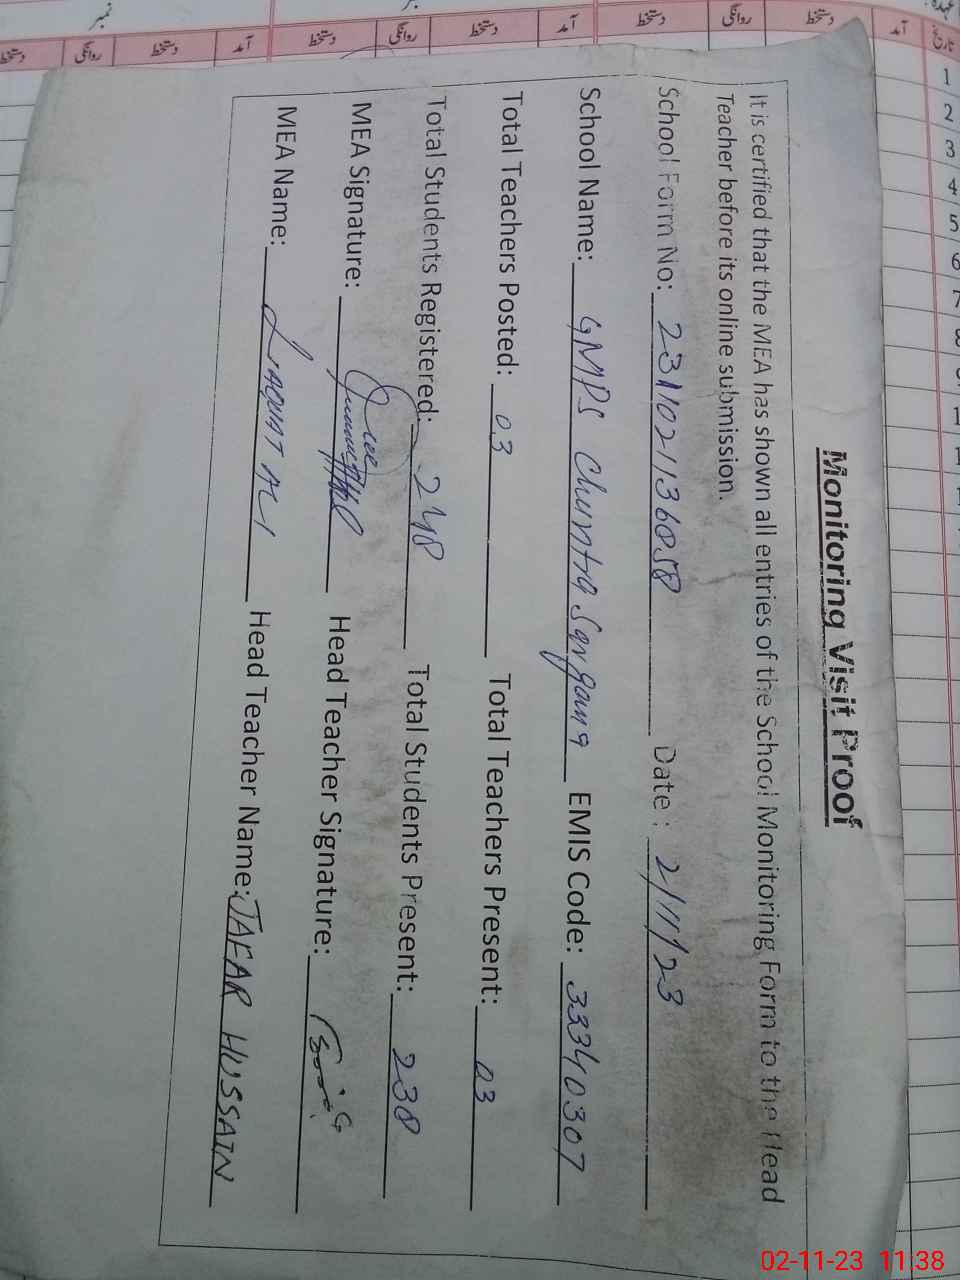 Monitoring Visit Proof
It is certified that the MEA has shown all entries of the School Monitoring Form to the Head
Teacher before its online submission.
School Form No: 2311021136058 Date: 2/11/23
School Name: GMPS Chuntra Sargana EMIS Code: 33340307
Total Teachers Posted: 03 Total Teachers Present: 03
Total Students Registered: 248 Total Students Present: 238
MEA Signature: Head Teacher Signature:
MEA Name: LIAQUAT ALI Head Teacher Name: JAFAR HUSSAIN
آمد دستخط روانگی دستخط آمد دستخط روانگی دستخط آمد
1
2
3
4
5
6
7
8
02-11-23 11:38